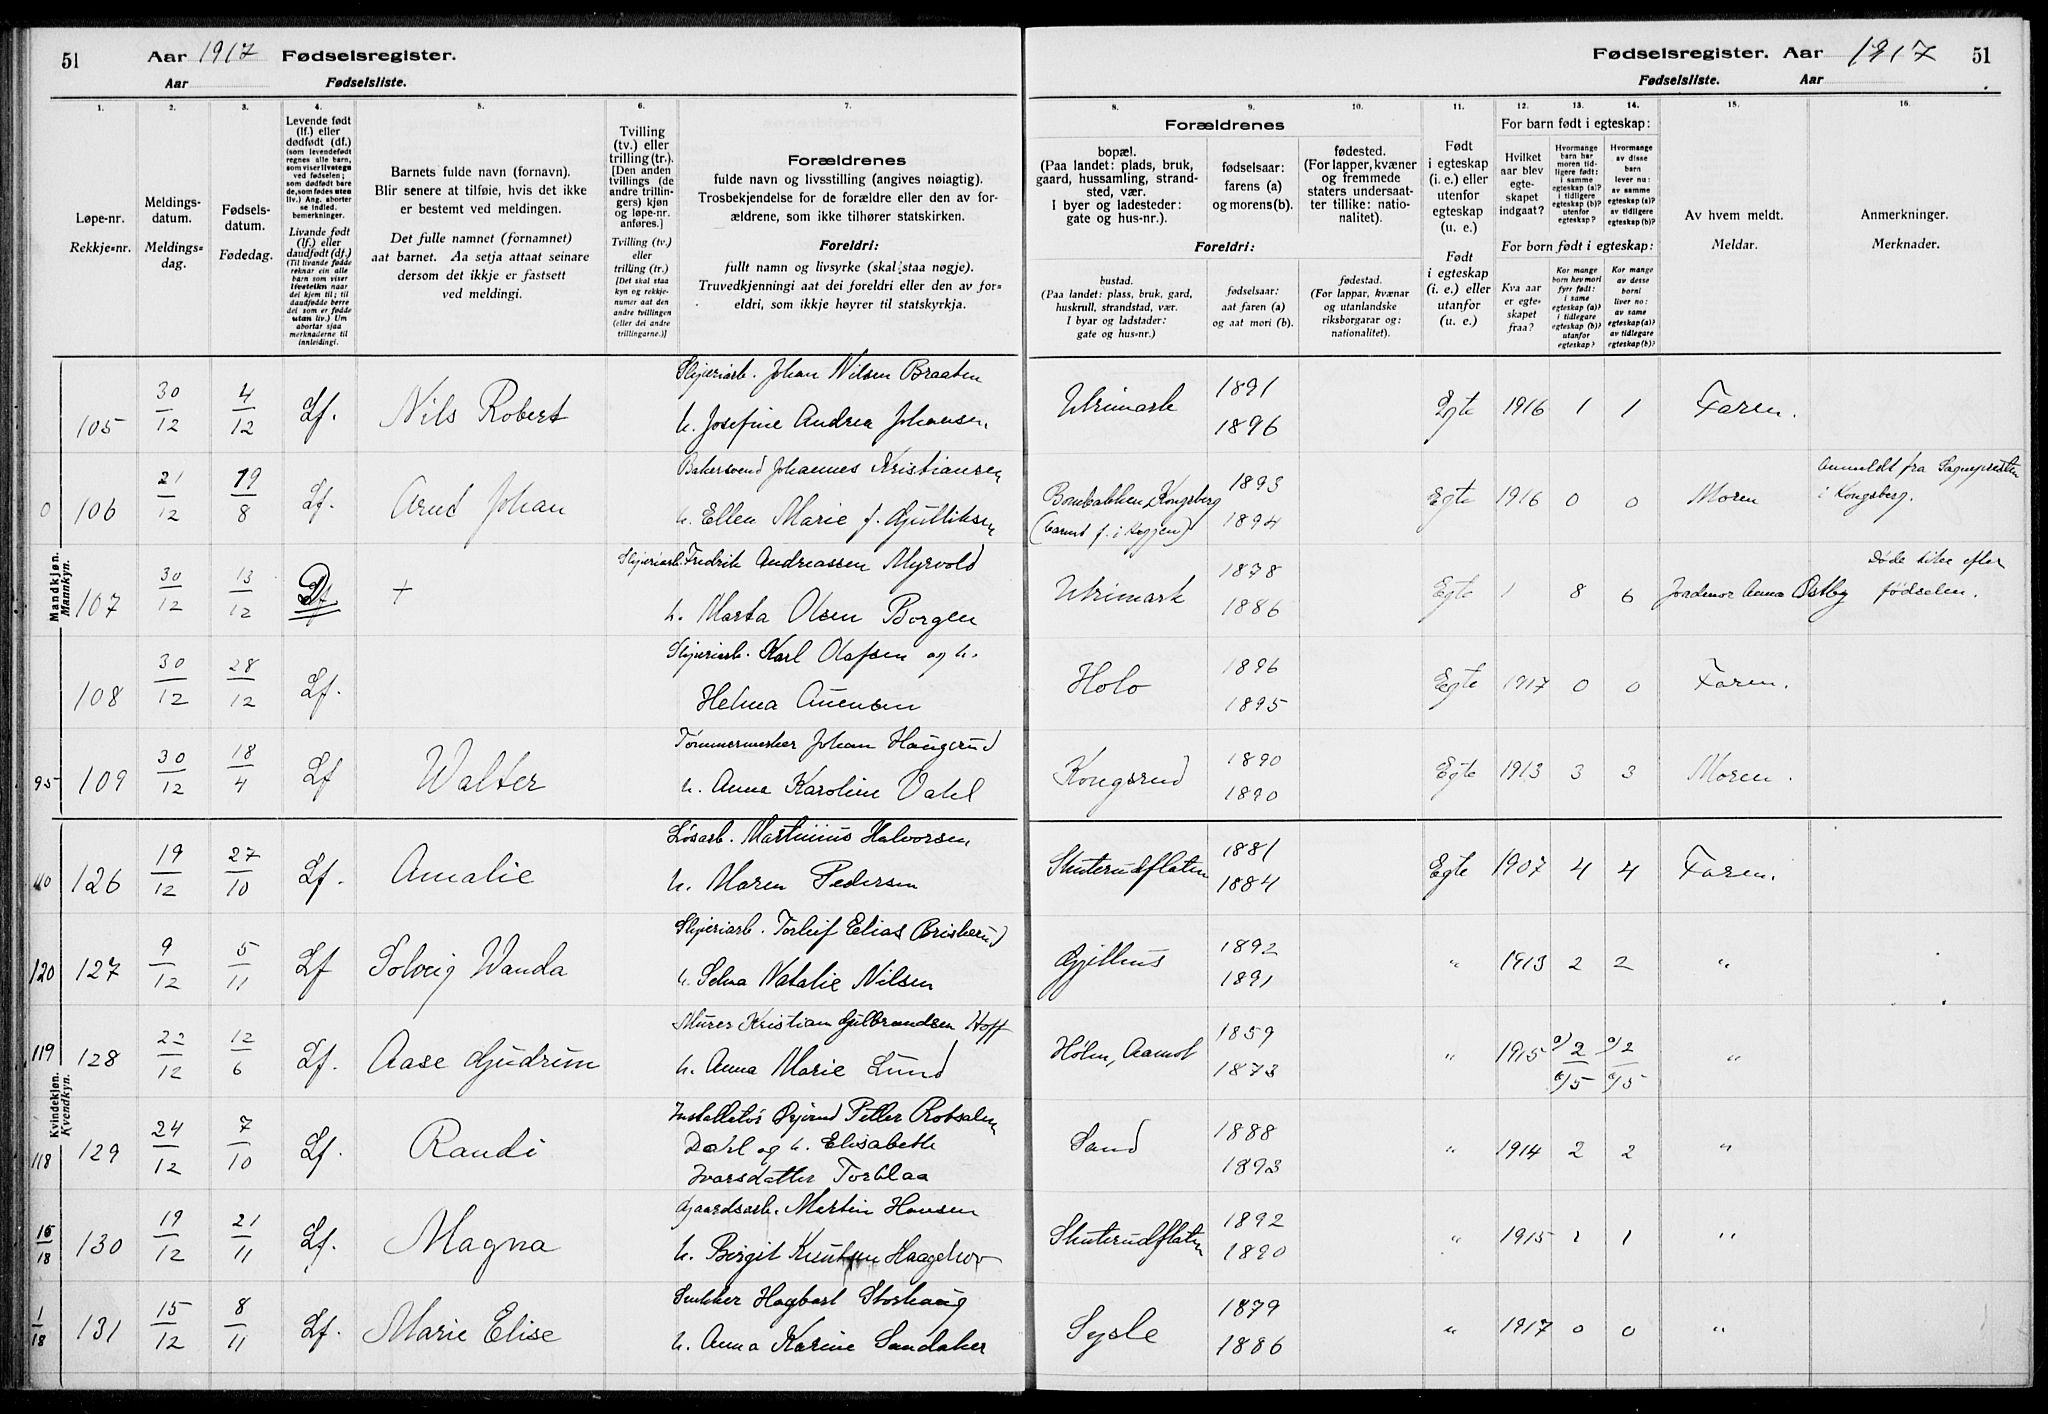 51 Aar 1917 Fødselsregister.
Aar Fødselsliste.
Fødselsregister. Aar 1917 51
Fødselsliste. Aar
1. 2. 3. 4. 5. 6. 7.
Løpe-nr.
Rekkje=nr.
Meldings-
datum.
Meldings=
dag.
Fødsels-
datum.
Fødedag.
Levende født
(lf.) eller
dødfødt (df.)
(som levendefødt
regnes alle barn,
som viser livstegn
ved fødselen;
som dødfødt bare
de, som fødes uten
liv.) Ang. aborter
se indled.
bemerkninger.
Livande født
(lf.) eller
daudfødt (df.)
(Til livande fødde
reknar ein alle
barn som viser
livsteikn naar
dei kjem til; til
daudfødde berre
dei som er fødde
utan liv.) Um
abortar sjaa
merknaderne til
innleidingi.
Barnets fulde navn (fornavn).
Blir senere at tilføie, hvis det ikke
er bestemt ved meldingen.
Det fulle namnet (fornamnet)
aat barnet. Aa setja attaat seinare
dersom det ikkje er fastsett
ved meldingi.
Tvilling
(tv.) eller
trilling (tr.).
[Den anden
tvillings (de
andre trillin-
gers) kjøn
og løpe-nr.
anføres.]
Tvilling (tv.)
eller
trilling (tr.)
[Det skal staa
kyn og rekkje-
numer aat den
andre tvillingen
(eller dei andre
trillingarne.)]
Forældrenes
fulde navn og livsstilling (angives nøiagtig).
Trosbekjendelse for de forældre eller den av for-
ældrene, som ikke tilhører statskirken.
Foreldri:
fullt namn og livsyrke (skal staa nøgje).
Truvedkjenningi aat dei foreldri eller den av for=
eldri, som ikkje høyrer til statskyrkja.
8. 9. 10. 11. 12. 13. 14. 15. 16.
Forældrenes
bopæl.
(Paa landet: plads, bruk,
gaard, hussamling, strand-
sted, vær.
I byer og ladesteder:
gate og hus-nr.).
fødselsaar:
farens (a)
og morens (b).
fødested.
(For lapper, kvæner
og fremmede
staters undersaat-
ter tillike: natio-
nalitet).
Foreldri:
bustad.
(Paa landet: plass, bruk, gard,
huskrull, strandstad, vær.
I byar og ladstader:
gate og hus=nr.)
fødselsaar:
aat faren (a)
og aat mori (b).
fødestad.
(For lappar, kvænar
og utanlandske
riksborgarar og:
nationalitet).
Født
i egteskap
(i. e.) eller
utenfor
egteskap
(u. e.)
Født
i egteskap
(i. e.) eller
utanfor
(u. e.)
For barn født i egteskap:
Hvilket
aar blev
egte-
skapet
indgaat?
Hvormange
barn har
moren tid-
ligere født:
i samme
egteskap (a)?
i tidligere
egteskap (b)?
utenfor
egteskap?
Hvormange
av disse
barn
lever nu:
av samme
egteskap (a)?
av tidligere
egteskap (b)?
For born født i egteskap:
Kva aar
er egte-
skapet
fraa?
Kor mange
born hev mori
fyrr født:
i same
egteskap (a)?
i tidlegare
egteskap (b)?
utanfor
egteskap?
Kor mange
av desse
borni
liver no:
av same
egteskap (a)?
av tidlegare
egteskap (b)?
Av hvem meldt.
Meldar.
Anmerkninger.
Merknader.
Mandkjøn.
Mannkyn.
105 30/12 4/12 Lf. Nils Robert Sliperiarb. Johan Nilsen Braaten
h. Josefine Andrea Johansen. 1891 1896 Egte 1916 1 1 Faren.
0 106 21/12 19/8 Lf. Arnt Johan Bakersvend Johannes Kristiansen
h. Ellen Marie f. Gulliksen Kongsberg 1893 1894 Egte 1916 0 0 Moren Anmeldt fra Sognepresten
i Kongsberg.
107 30/12 13/12 Df. + Sliperiarb. Fredrik Andreassen Myrvold
h. Marta Olsen Borgen 1878 1886 Egte 1 8 6 Jordmor Anna Østby Døde like efter
fødselen.
108 30/12 28/12 Lf. Sliperiarb. Karl Olafsen og h.
Helma Auensen Holo 1896 1895 Egte 1917 0 0 Faren.
95 109 30/12 18/4 Lf Walter Tømmermester Johan Haugerud
h. Anna Karoline Dahl Kongsrud 1890 1890 Egte 1913 3 3 Moren.
Kvindekjøn.
Kvendkyn.
110 126 19/12 27/10 Lf. Amalie Løsarb. Martinius Halvorsen
h. Maren Pedersen Skuterudflaten 1881 1884 Egte 1907 4 4 Faren.
120 127 9/12 5/11 Lf Solveig Wanda Sliperiarb. Torleif Elias Briskerud
h. Selma Natalie Nilsen Gjethus 1892 1891 " 1913 2 2 "
119 128 22/12 12/6 Lf. Aase Gudrun Murer Kristian Gulbrandsen Hoff
h. Anna Marie Lund Holm, Aamot 1859 1873 " 1915 a/2 b/5 a/2 b/5 "
118 129 24/12 7/10 Lf. Randi Installatør Øyvind Petter Robsalm
Dahl og h. Elisabeth
Ivarsdatter Torblaa Sand 1888 1893 " 1914 2 2 "
16/18 130 19/12 21/11 Lf. Magna Gaardsarb. Martin Hansen
h. Birgit Knutsen Haagehov Skuterudflaten 1892 1890 " 1915 1 1 "
1/18 131 15/12 8/11 Lf. Marie Elise Snekker Hagbart Storhaug
h. Anna Karine Sandaker Sysle 1879 1886 " 1917 0 0 "